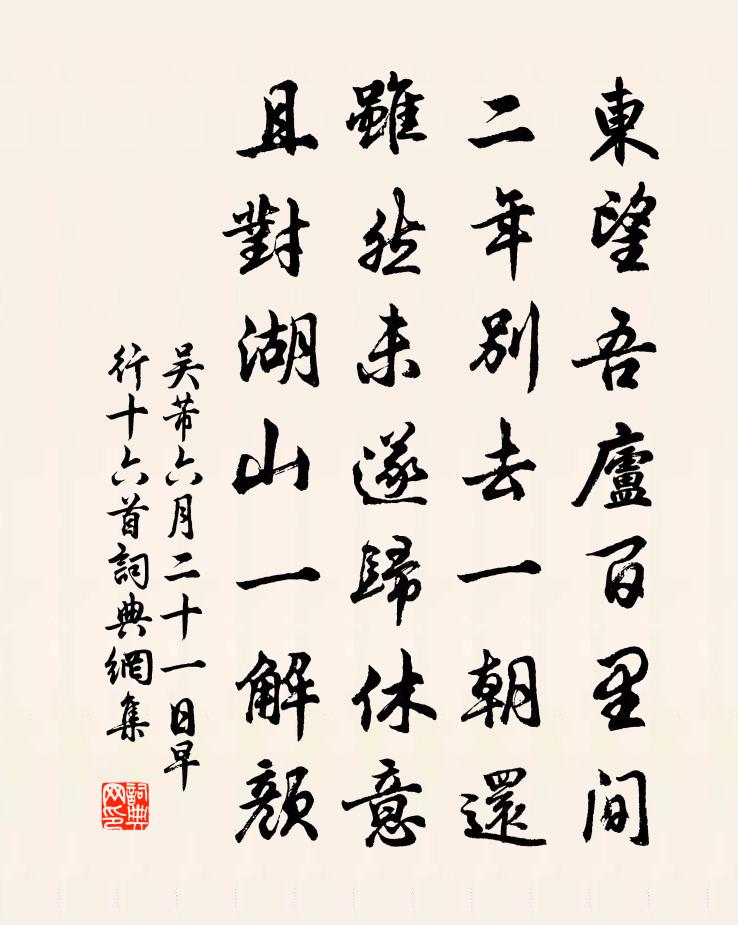 東望吾廬百里間
二年別去一朝還
雖然未遂歸休意
且對湖山一解顏
吴芾六月二十一日早
行十六首詞典網集
詞典
网印